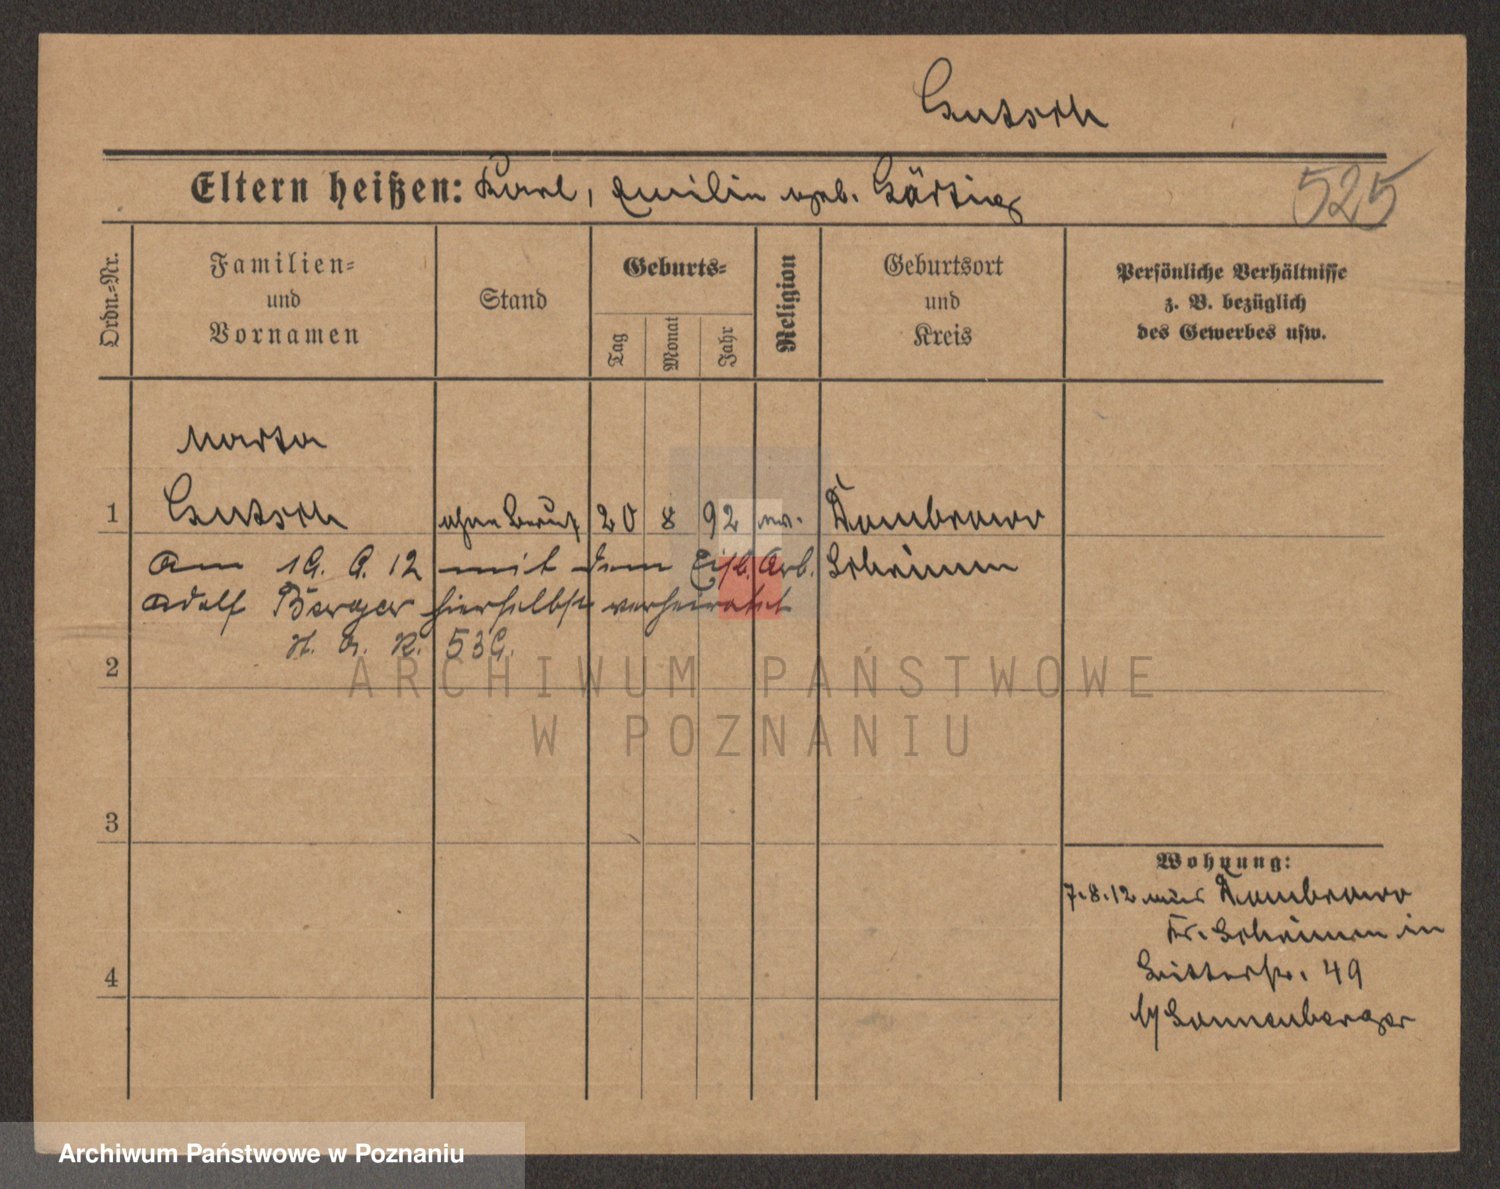 Gutsch
Eltern heißen: Karl, Emilie geb. Härting
525
Ordn.-Nr.
Familien-
und
Vornamen
Stand
Geburts-
Tag
Monat
Jahr
Religion
Geburtsort
und
Kreis
Persönliche Verhältnisse
z. B. bezüglich
des Gewerbes usw.
Marta
1 Gutsch ohne Beruf 20 8 92 ev. Dombrowo
Am 19. 9. 12 mit dem Eisb. Arb. Schrimm
Adolf Berger hierselbst verheiratet
H. A. R. 539.
2
3
4
Wohnung:
7.8.12 aus Dombrowo
Kr. Schrimm in
Ritterstr. 49
b/ Sonnenberger
ARCHIWUM PAŃSTWOWE
W POZNANIU
Archiwum Państwowe w Poznaniu